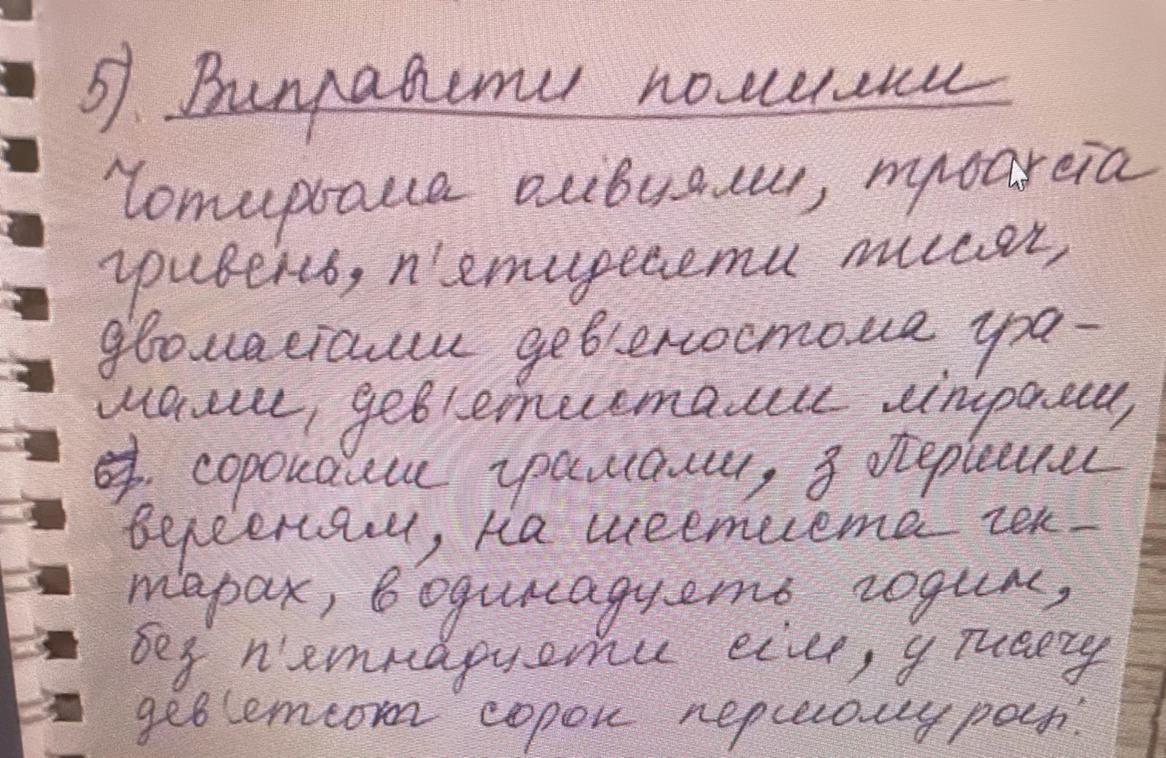 5). Виправити помилки
Чотирьома олівцями, трьохста
гривень, п'ятидесяти тисяч,
двомастами дев'яностома гра-
мами, дев'ятистами літрами,
сороками грамами, з Першим
вересням, на шестиста гек-
тарах, в одинадцять годин,
без п'ятнадцяти сім, у тисячу
дев'ятсот сорок першому році.